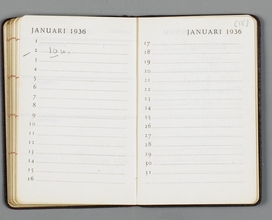 JANUARI 1936
1
2
3
4
5
6
7
8
9
10
11
12
13
14
15
16
JANUARI 1936
17
18
19
20
21
22
23
24
25
26
27
28
29
30
31